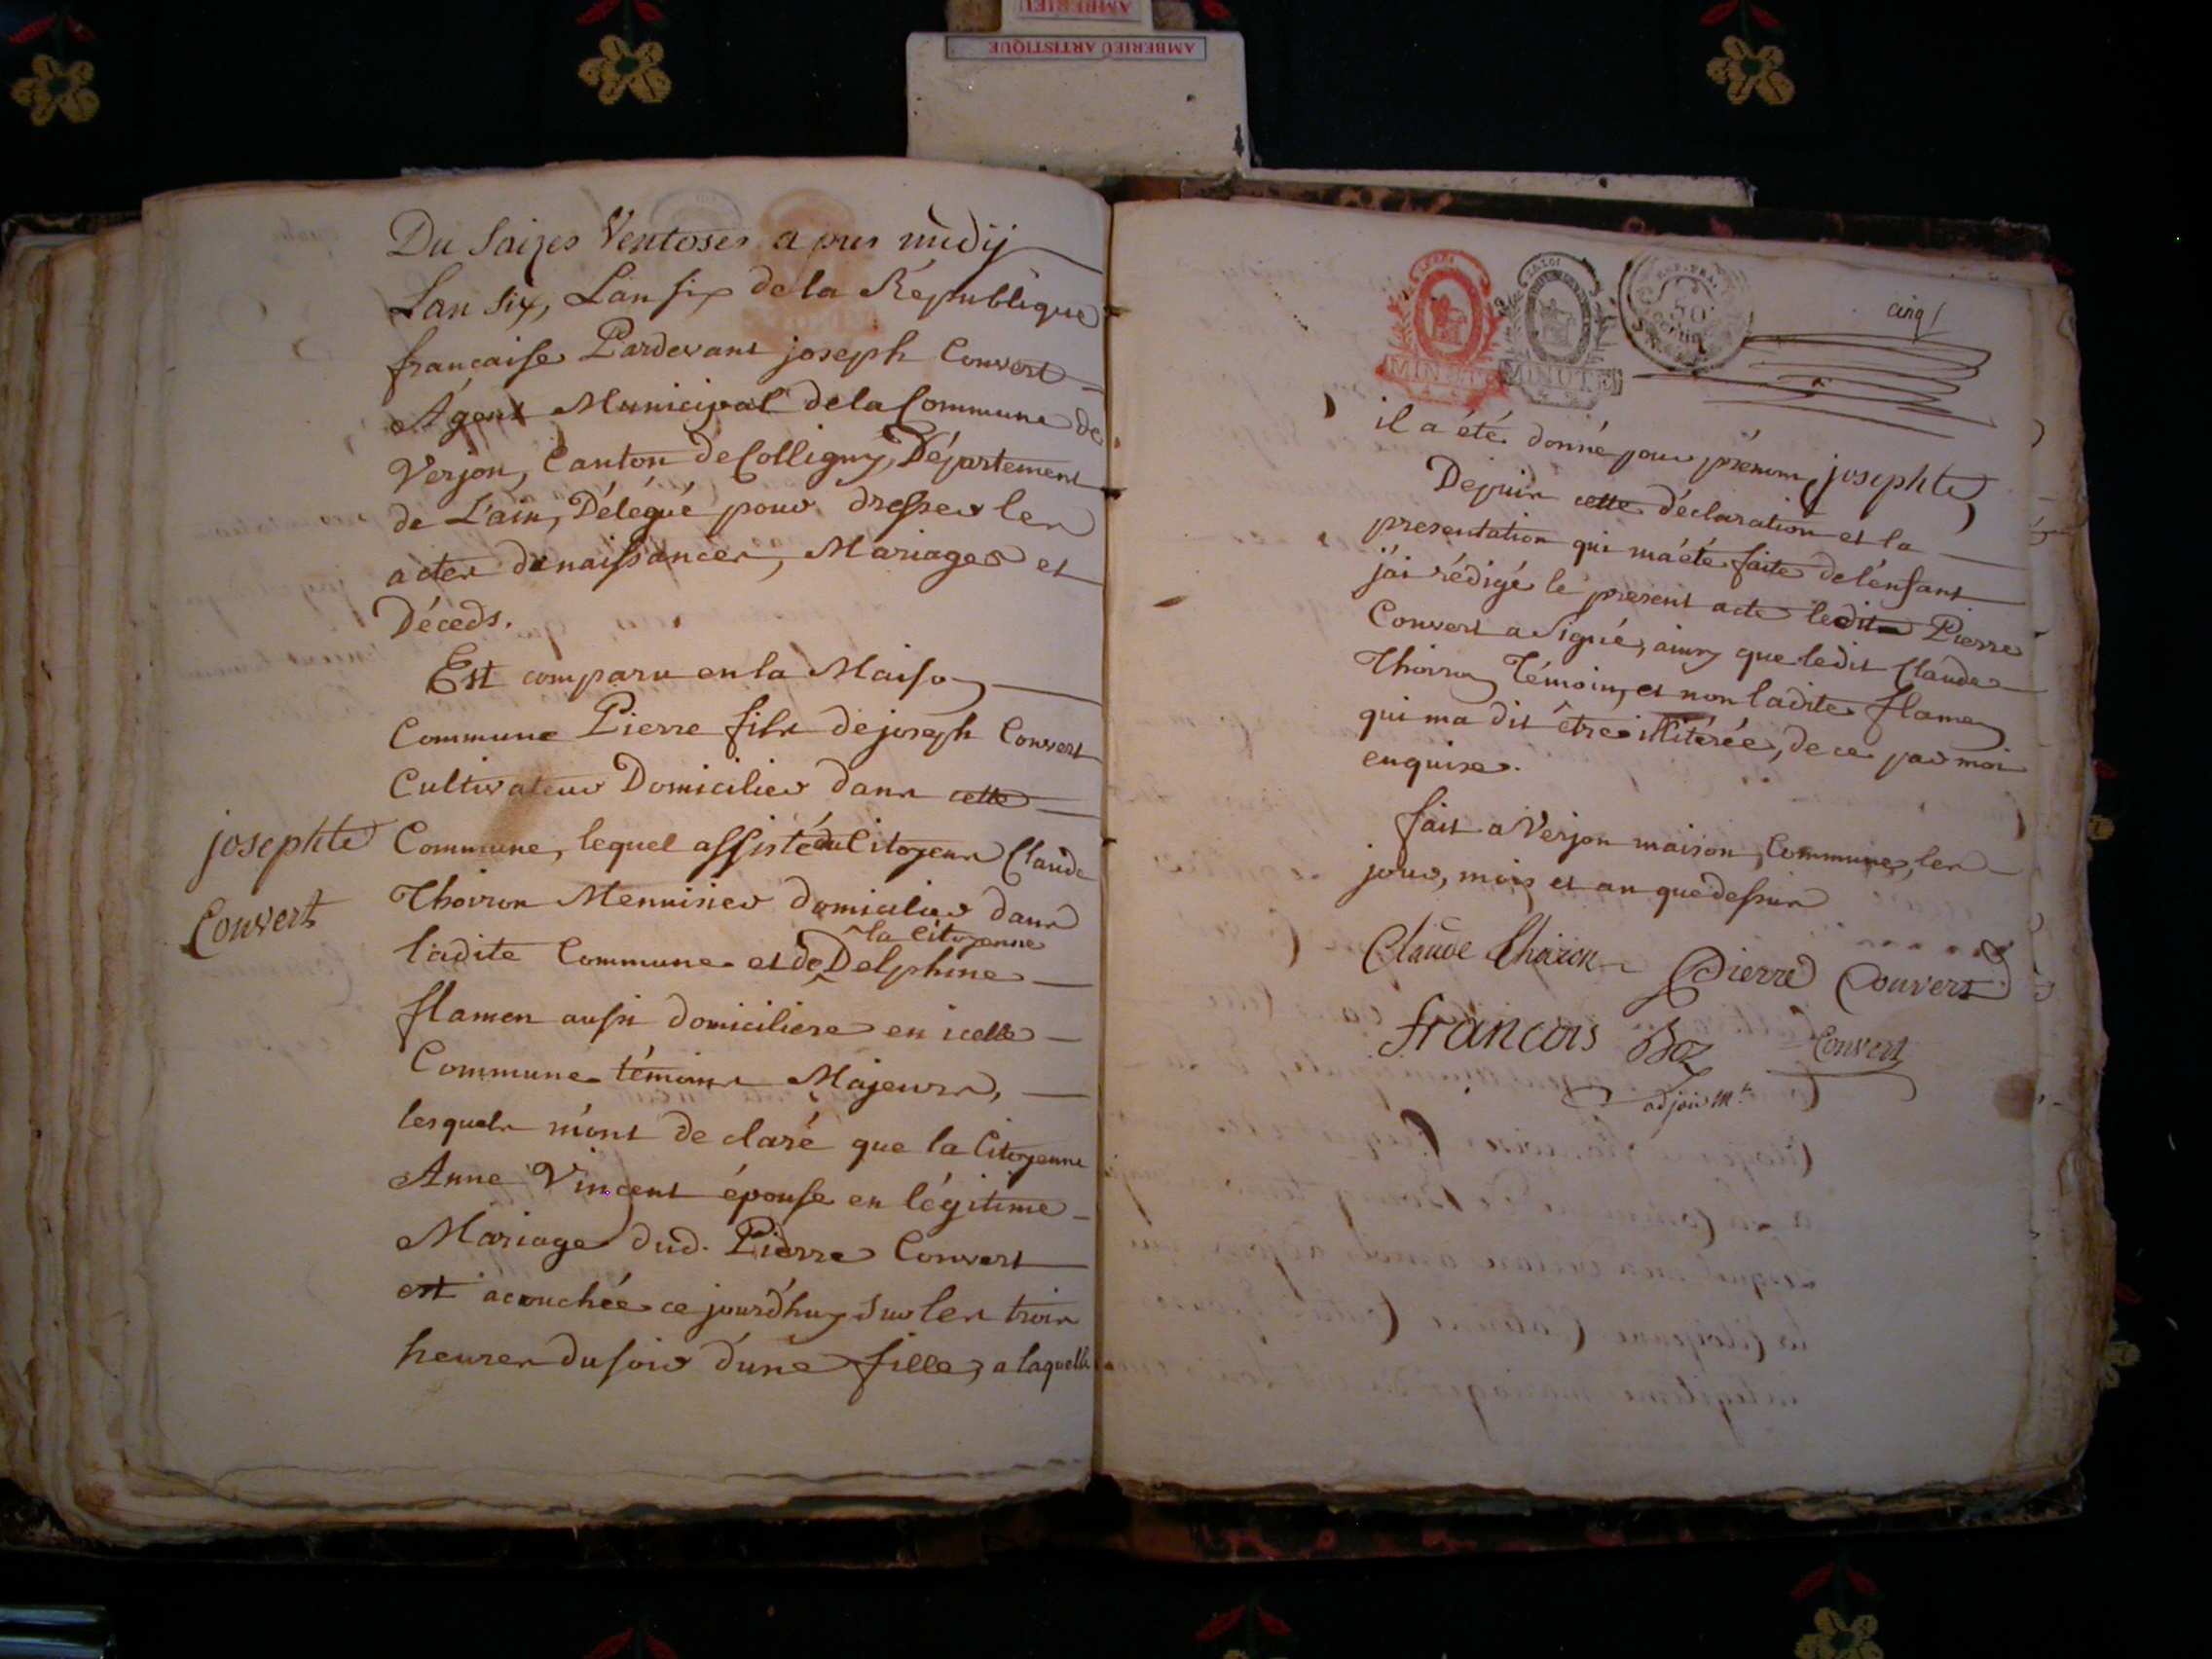 AMBERIEU
AMBERIEU ARTISTIQUE
Du Saizes Ventoses a pres midÿ
Lan Six, Lan six de la République
francaise Pardevant joseph Convert
Agent Municipal de la Commune de
Verjon, Canton de Colligny, Département
de L'ain, Délégué pour dresser les
actes de naissances, Mariages et
Déceds.
Est comparu en la Maison
Commune Pierre fils de joseph Convert
Cultivateur Domicilier dans cette
josephte
Convert
Commune, lequel assisté du Citoyens Claude
Thoiron Menuisier domicilier dans
la Citoyenne
ladite Commune et de Delphine
flamen aussi domiciliere en icelle
Commune témoins Majeurs,
lesquels m'ont de claré que la Citoyenne
Anne Vincent épouse en légitime
Mariage dud. Pierre Convert
est acouchée ce jourd'huy sur les trois
heures du soir d'une fille, a laquelle
MINUTE
MINUTE
REP. FRA.
50
cinq
il a été donné pour prénom, josephte
Depuis cette déclaration et la
presentation qui m'a été faite de l'enfant
j'ai rédigé le present acte ledit Pierre
Convert a Signé, ainsy que ledit Claude
Thoiron Témoin, et non ladite flamen
qui ma dit être illiterée, de ce par moi
enquise.
fait a Verjon maison Commune, les
jour, mois et an que dessus
Claude thoiron Pierre Convert
francois Boz Convert
adjoint mal